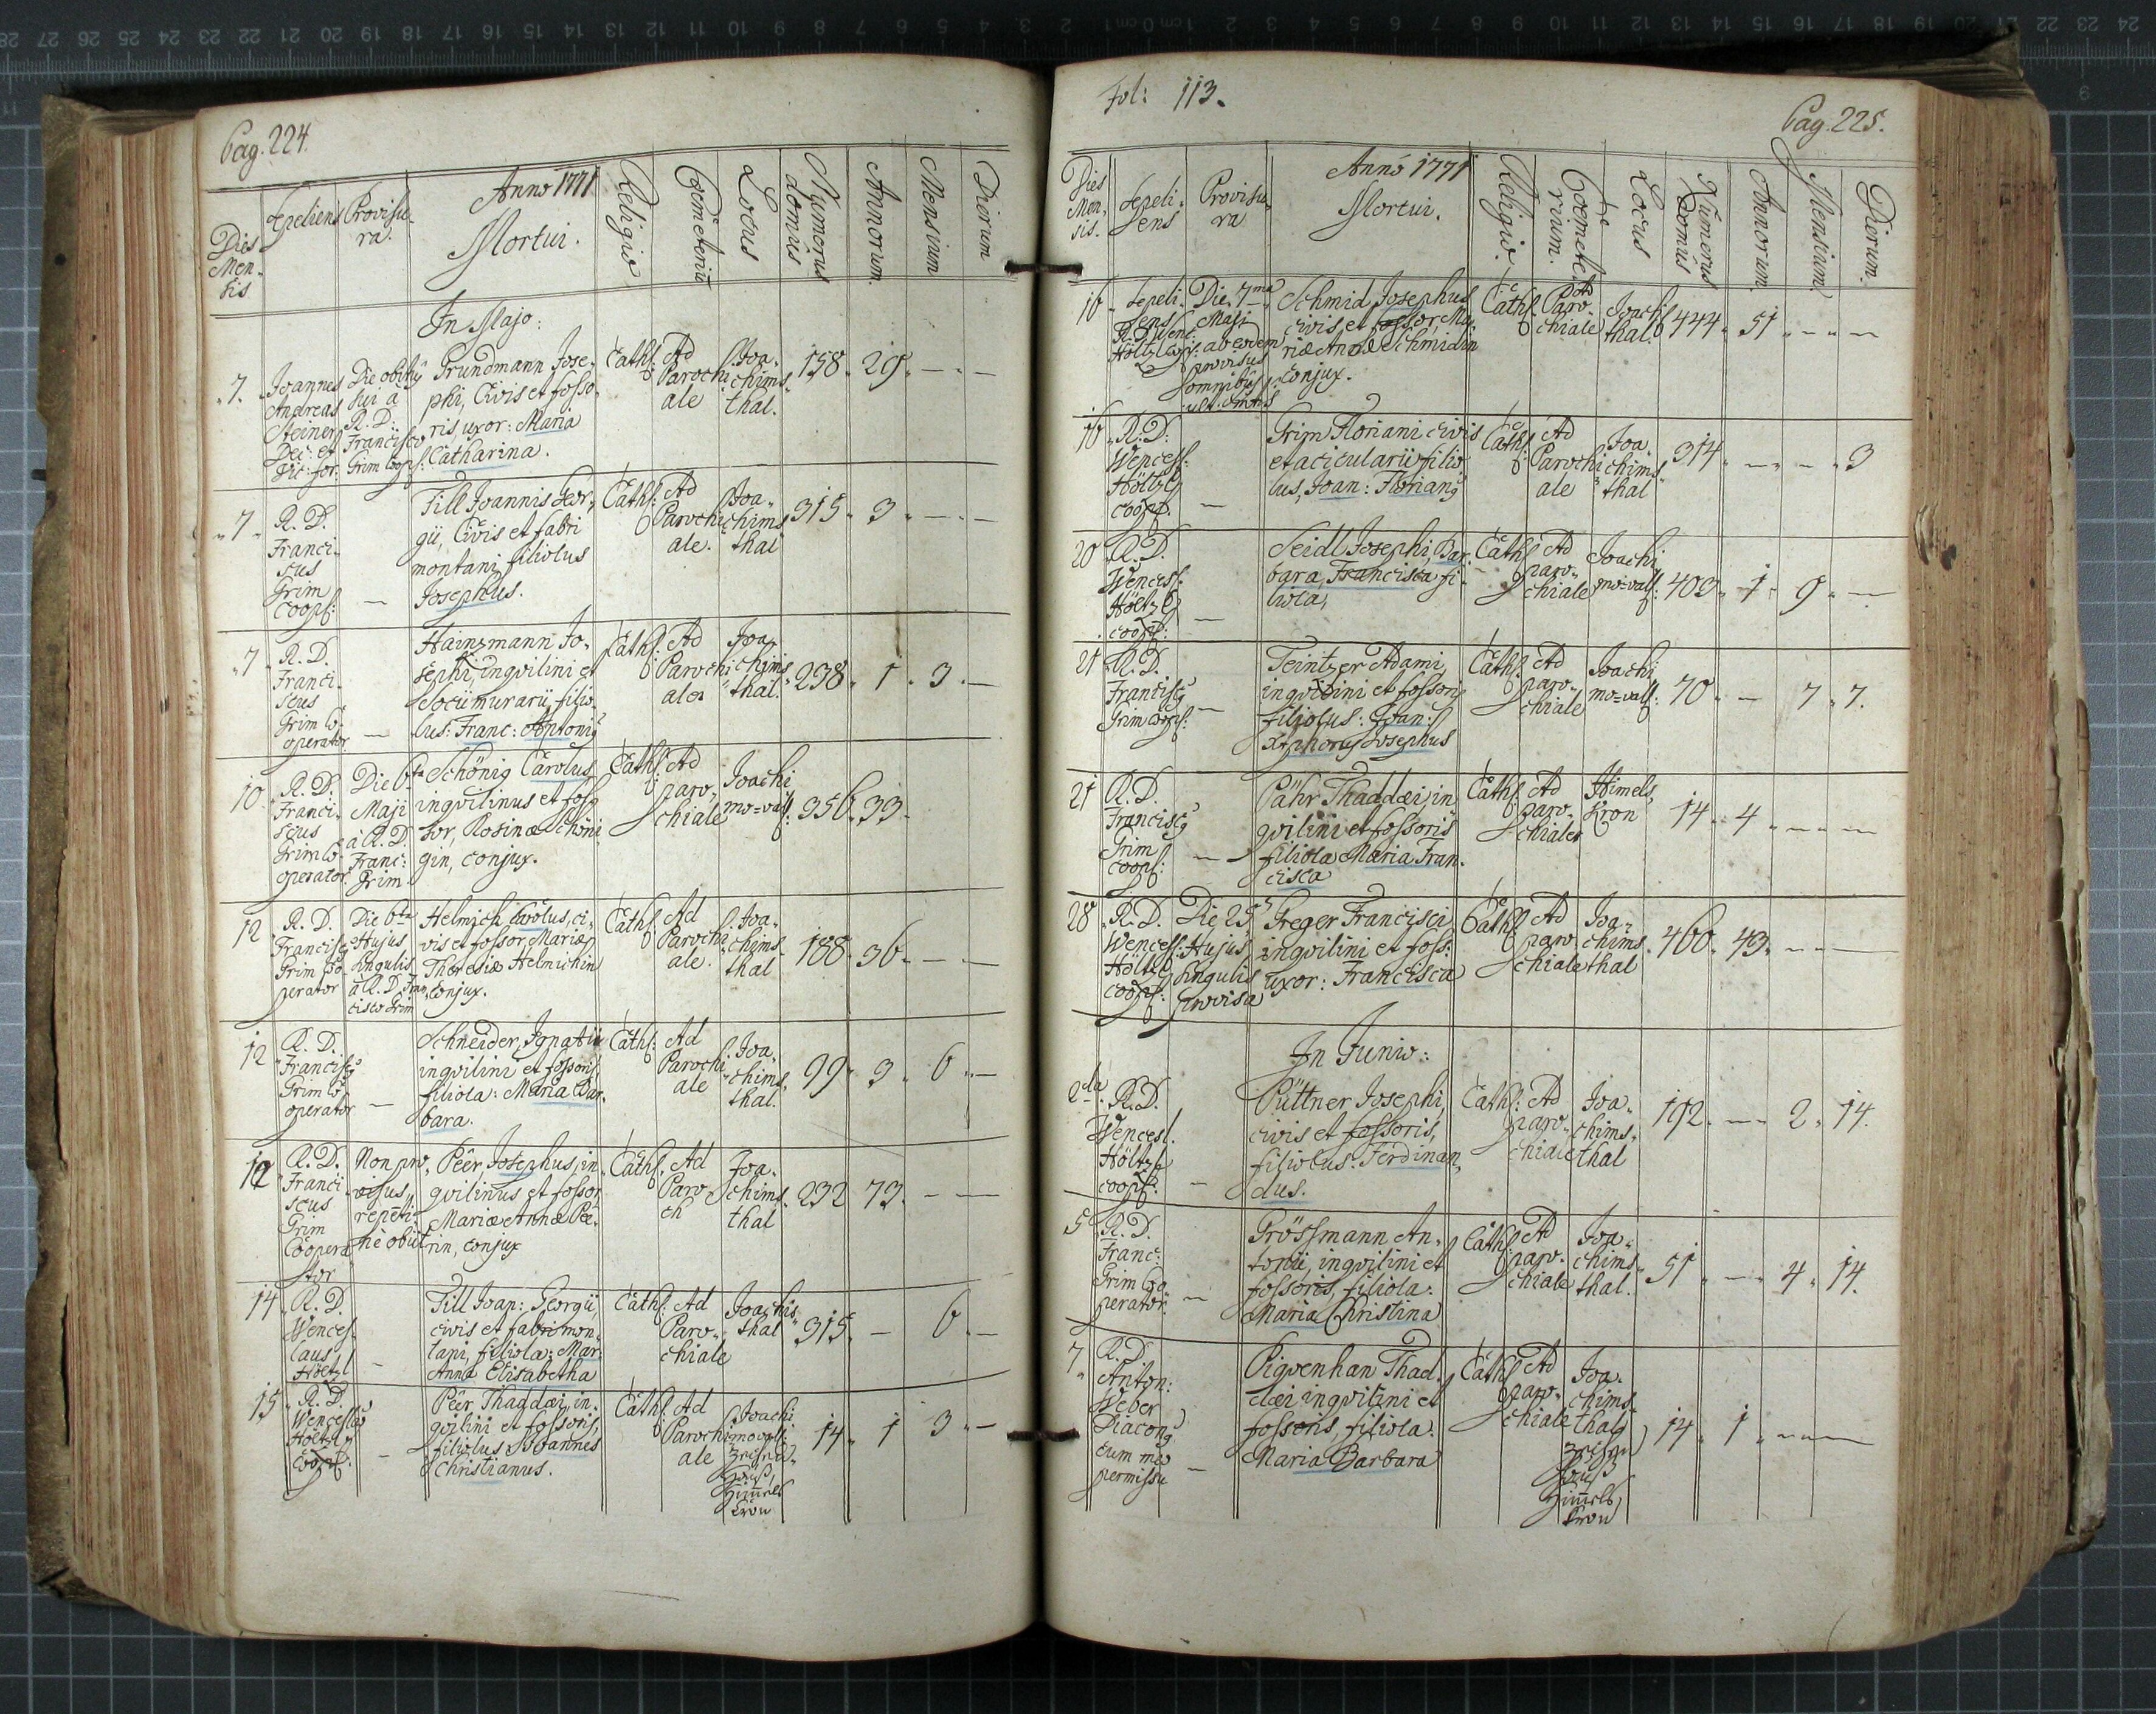 Pag. 224.
Dies Mensis
Sepeliens
Provisura.
Anno 1771
Mortui.
Religio
Coemeteriu
Locus
Numerus domûs
Annorum.
Mensium
Dierum
In Majo:
7. Joannes Andreas Steiner Dec: et Vic: for:
Die obitûs sui a R. D: Francisco Grim Coop:
Grundmann Jose-
phi, Civis et fosso-
ris, uxor: Maria
Catharina.
Cath: Ad Parochiale Joachimsthal. 158. 29. — —
7 R. D. Franciscus Grim Coop: —
Till Joannis Geor-
gii, Civis et fabri
montani, filiolus
Josephus.
Cath: Ad Parochiale. Joachimsthal 315. 3. — —
7 R. D. Franciscus Grim Cooperator —
Hainzmann Jo-
sephi, inqvilini et
Socii murarii, filio-
lus: Franc: Antonius
Cath: Ad Parochiale Joachimsthal. 238. 1. 3. —
10 R. D. Franciscus Grim Cooperator
Die 6ta Maji à R. D. Franc: Grim
Schönig Carolus,
inqvilinus et fos-
sor, Rosinae Schöni-
gin, conjux.
Cath: Ad parochiale Joachimo=vall: 356. 33.
12 R. D. Franciscus Grim Cooperator
Die 6ta Hujus singulis à R. D. Francisco Grim
Helmich Carolus, ci-
vis et fossor, Mariae
Theresiae Helmichin
conjux.
Cath: Ad Parochiale. Joachimsthal 188. 36. — —
12 R. D. Franciscus Grim Cooperator —
Schneider, Ignatii
inqvilini et fossoris
filiola: Maria Bar-
bara.
Cath: Ad Parochiale Joachimsthal. 99. 3. 6. —
12 R. D. Franciscus Grim Cooperator
Non provisus, repentine obiit
Peër, Josephus, in-
qvilinus et fossor
Mariae Annae Pee-
rin, conjux
Cath: Ad Paroch Joachimsthal 232 73. — —
14 R. D. Wenceslaus Höltzl —
Till Joan: Georgii,
civis et fabri mon-
tani, filiola: Mar:
Anna Elisabetha
Cath: Ad Parochiale Joachimsthal 315. — 6. —
15 R. D. Wenceslaus Höltzl Coop: —
Peër, Thaddaei, in-
qvilini et fossoris,
filiolus Joannes
Christianus.
Cath: Ad Parochiale Joachimovall: Zechen Hauß, Himels Cron 14. 1 3. —
Fol: 113.
Pag. 225.
Dies Mensis.
Sepeliens
Provisura
Anno 1771
Mortui.
Religio.
Coemeterium.
Locus
Numerus Domûs
Annorum.
Mensium.
Dierum.
16 Sepeliens R. D. Wenc: Höltzl Coop:
Die 7ma Maji ab eodem provisus omnibus
Schmid Josephus
civis, et fossor, Ma-
riae Annae Schmidin
Conjux.
Cath: Ad Parochiale Joachimsthal. 444. 51. — —
16 R. D. Wencesl: Höltzl coop. —
Grim Floriani civis
et acicularii filio-
lus, Joan: Florianus
Cath: Ad Parochiale Joachimsthal 314 — — 3
20 R. D. Wencesl: Höltzl coop: —
Seidl Josephi, Bar-
bara, Francisca fi-
liola,
Cath: Ad parochiale Joachimo=vall: 409. 1. 9. —
21 R. D. Franciscus Grim coop: —
Teintzer Adami,
inqvilini et fossoris
filiolus: Joan:
Xtphorus Josephus
Cath: Ad parochiale Joachimo=vall: 70. — 7. 7.
21 R. D. Franciscus Grim coop: —
Pähr Thaddaei, in-
qvilini et fossoris
filiola Maria Fran-
cisca
Cath: Ad parochiale Himels Kron 14. 4. — —
28 R. D. Wencesl: Höltzl coop:
Die 25 Hujus singulis provisa
Greger Francisci
inqvilini et foss:
uxor: Francisca
Cath: Ad parochiale Joachimsthal 460. 43. — —
In Junio:
2da. R. D. Wencesl. Höltzl coop: —
Püttner Josephi,
civis et fossoris,
filiolus: Ferdinan-
dus.
Cath: Ad parochiale Joachimsthal 192. — 2. 14.
5 R. D. Franc: Grim Cooperator. —
Grössmann An-
tonii, inqvilini et
fossoris, filiola:
Maria Christina
Cath: Ad parochiale Joachimsthal. 51. — 4. 14.
7 R. D. Anton: Weber Diaconus cum meo permissu —
Pigvenhan Thad-
daei inqvilini et
fossoris, filiola:
Maria Barbara
Cath: Ad parochiale Joachimsthal Zechen Hauß Himels Kron 14. 1. — —